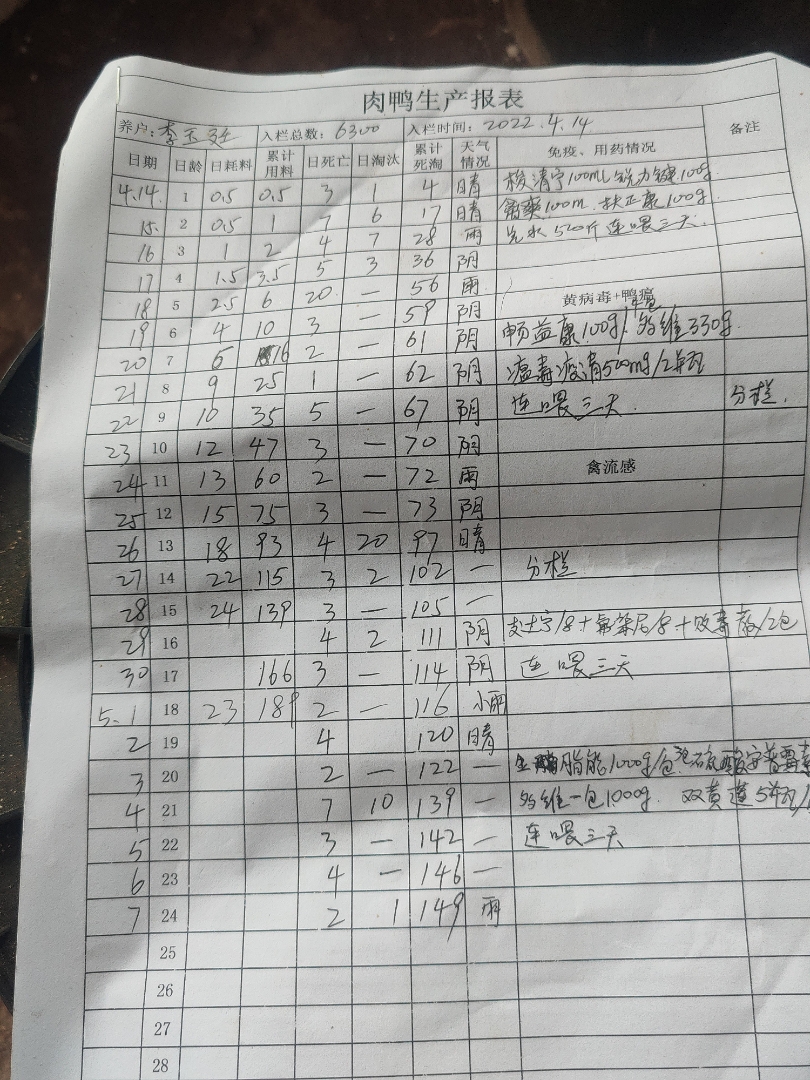 肉鸭生产报表
养户: 李玉 入栏总数: 6300 入栏时间: 2022.4.14 备注
日期 日龄 日耗料 累计用料 日死亡 日淘汰 累计死淘 天气情况 免疫、用药情况
4.14. 1 0.5 0.5 3 1 4 晴 清宁100mL 锐力健100g
15. 2 0.5 1 7 6 17 晴 100m. 扶正康100g
16 3 1 2 4 7 28 雨 兑水520斤 连喂三天
17 4 1.5 3.5 5 3 36 阴
18 5 2.5 6 20 56 雨 黄病毒+鸭瘟
19 6 4 10 3 — 59 阴 畅益康100g/4包 多维330g.
20 7 6 16 2 — 61 阴 瘟毒清500mg/2瓶
21 8 9 25 1 — 62 阴 连喂三天.
22 9 10 35 5 — 67 阴 分栏.
23 10 12 47 3 — 70 阴
24 11 13 60 2 — 72 雨 禽流感
25 12 15 75 3 — 73 阴
26 13 18 93 4 20 97 晴
27 14 22 115 3 2 102 — 分栏
28 15 24 139 3 — 105 —
29 16 4 2 111 阴 败毒散/2包
30 17 166 3 — 114 阴 连喂三天
5.1 18 23 189 2 — 116 小雨
2 19 4 120 晴
3 20 2 — 122 — 脂能1000g/包 硫酸安普霉素
4 21 7 10 139 — 多维一包1000g. 双黄连5瓶/
5 22 3 — 142 — 连喂三天
6 23 4 — 146 —
7 24 2 1 149 雨
25
26
27
28